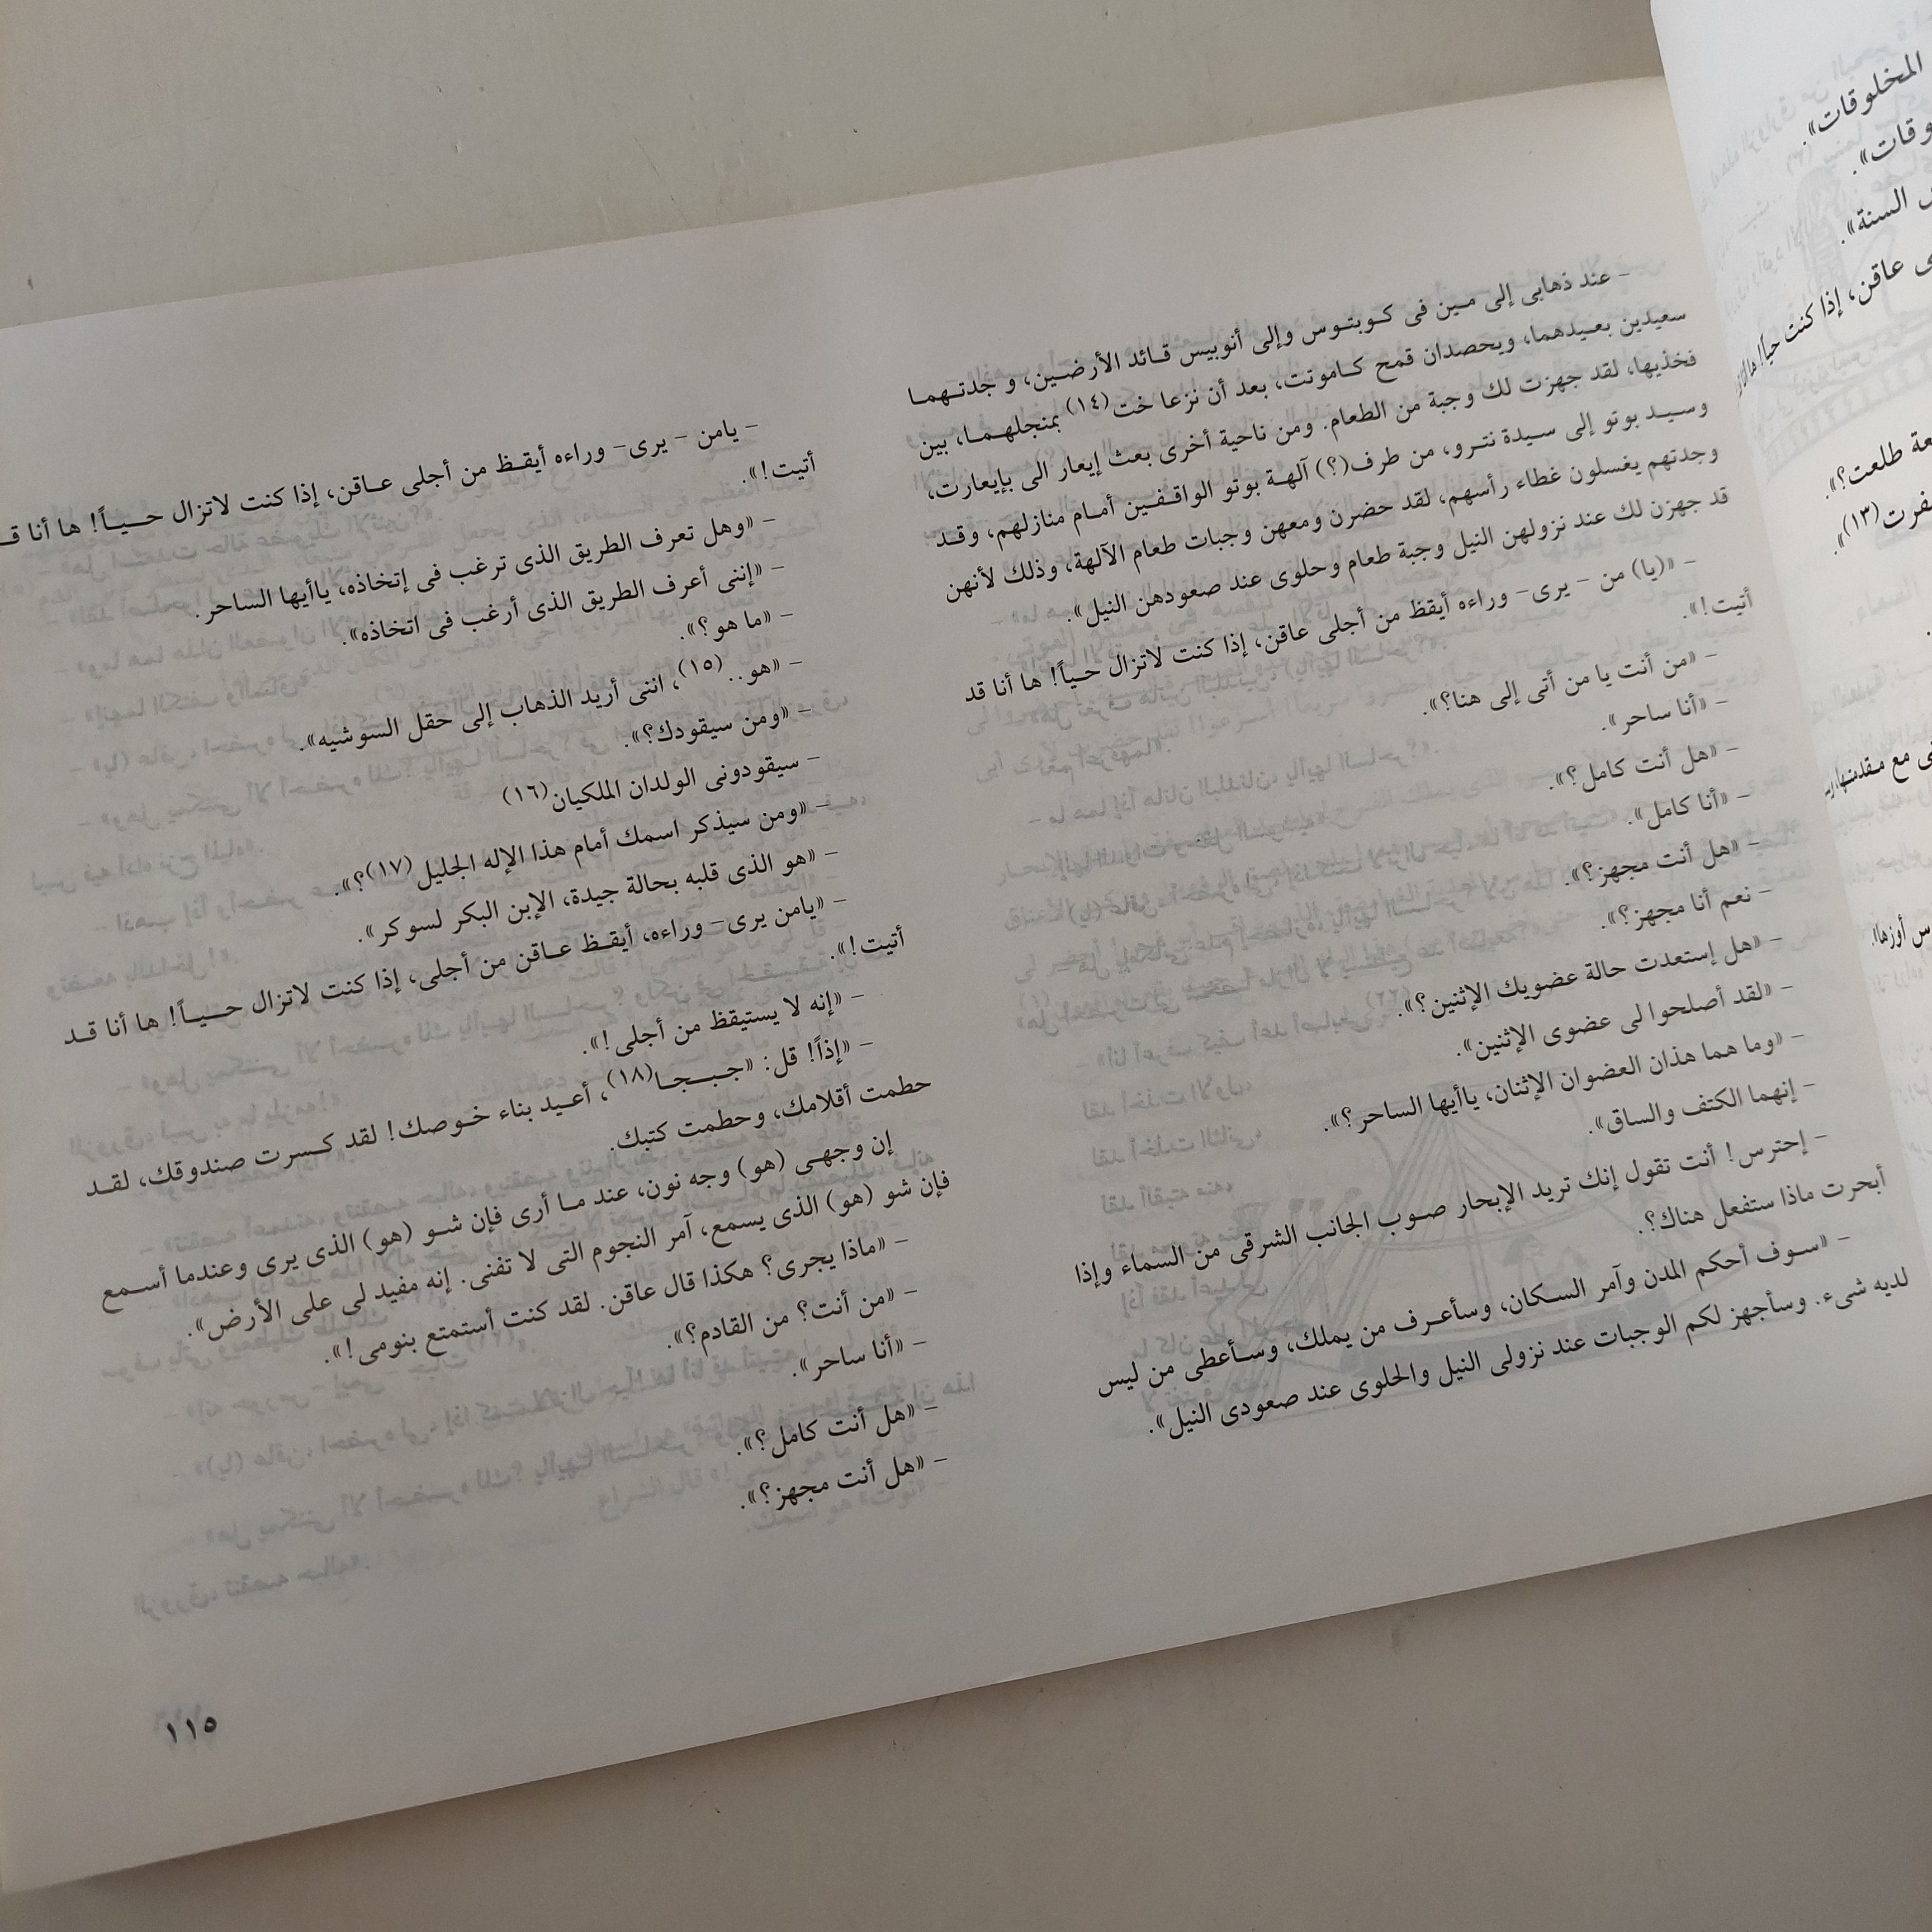 المخلوقات».
وقات».
السنة».
عاقن، إذا كنت حياً! ها
طلعت؟».
فرت(١٣)».
مع مقدمتها
أوزها».
– عند ذهابى إلى مين فى كوبتوس وإلى أنوبيس قائد الأرضين، و جدتهما
سعيدين بعيدهما، ويحصدان قمح كاموتت، بعد أن نزعا خت(١٤) بمنجلهما، بين
فخذيها، لقد جهزت لك وجبة من الطعام. ومن ناحية أخرى بعث إيعار الى بإيعارت،
وسيد بوتو إلى سيدة نترو، من طرف(؟) آلهة بوتو الواقفين أمام منازلهم، وقد
وجدتهم يغسلون غطاء رأسهم، لقد حضرن ومعهن وجبات طعام الآلهة، وذلك لأنهن
قد جهزن لك عند نزولهن النيل وجبة طعام وحلوى عند صعودهن النيل».
– «(يا) من – يرى– وراءه أيقظ من أجلى عاقن، إذا كنت لاتزال حياً! ها أنا قد
أتيت!».
– «من أنت يا من أتى إلى هنا؟».
– «أنا ساحر».
– «هل أنت كامل؟».
– «أنا كامل».
– «هل أنت مجهز؟».
– نعم أنا مجهز؟».
– «هل إستعدت حالة عضويك الإثنين؟».
– «لقد أصلحوا لى عضوى الإثنين».
– «وما هما هذان العضوان الإثنان، ياأيها الساحر؟».
– إنهما الكتف والساق».
– إحترس! أنت تقول إنك تريد الإبحار صوب الجانب الشرقى من السماء وإذا
أبحرت ماذا ستفعل هناك؟.
– «سوف أحكم المدن وآمر السكان، وسأعرف من يملك، وسأعطى من ليس
لديه شىء. وسأجهز لكم الوجبات عند نزولى النيل والحلوى عند صعودى النيل».
– يامن – يرى– وراءه أيقظ من أجلى عاقن، إذا كنت لاتزال حياً! ها أنا قـ
أتيت!».
– «وهل تعرف الطريق الذى ترغب فى إتخاذه، ياأيها الساحر.
– «إننى أعرف الطريق الذى أرغب فى اتخاذه».
– «ما هو؟».
– «هو..(١٥)، اننى أريد الذهاب إلى حقل السوشيه».
– «ومن سيقودك؟».
– سيقودونى الولدان الملكيان(١٦)
– «ومن سيذكر اسمك أمام هذا الإله الجليل(١٧)؟».
– «هو الذى قلبه بحالة جيدة، الإبن البكر لسوكر».
– «يامن يرى– وراءه، أيقظ عاقن من أجلى، إذا كنت لاتزال حياً! ها أنا قد
أتيت!».
– «إنه لا يستيقظ من أجلى!».
– «إذاً! قل: «جبجا(١٨)، أعيد بناء خوصك! لقد كسرت صندوقك، لقد
حطمت أقلامك، وحطمت كتبك.
إن وجهى (هو) وجه نون، عند ما أرى فإن شو (هو) الذى يرى وعندما أسمع
فإن شو (هو) الذى يسمع، آمر النجوم التى لا تفنى. إنه مفيد لى على الأرض».
– «ماذا يجرى؟ هكذا قال عاقن. لقد كنت أستمتع بنومى!».
– «من أنت؟ من القادم؟».
– «أنا ساحر».
– «هل أنت كامل؟».
– «هل أنت مجهز؟».
١١٥